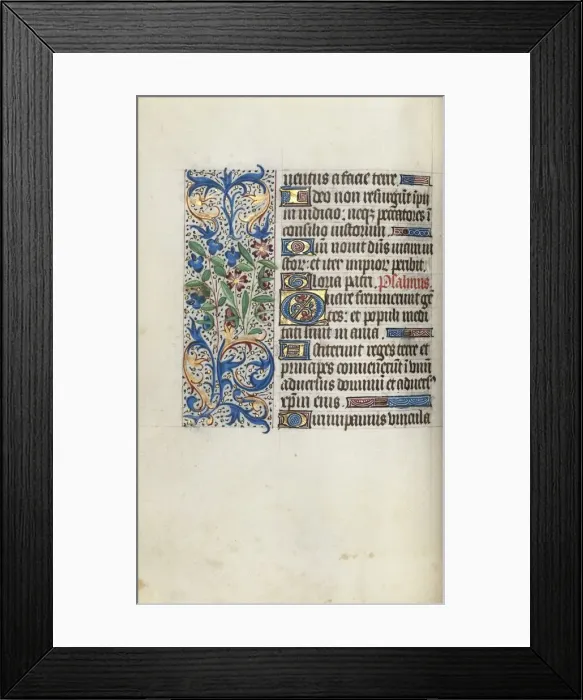 uentus a facie terre
Ideo non resurgũt ipii
in iudicio: neqȝ peccatores ĩ
consilio iustorum
Qm̃ nouit dñs uiam iu
storȝ: et iter impiorȝ peribit.
Gloria patri. Psalmus.
Quare fremuerunt gẽ
tes: et populi medi
tati sunt in ania.
Astiterunt reges terre et
principes conuenerũt ĩ vnũ
aduersus dominũ et aduersˀ
xp̃m eius.
Dirumpamus vincula